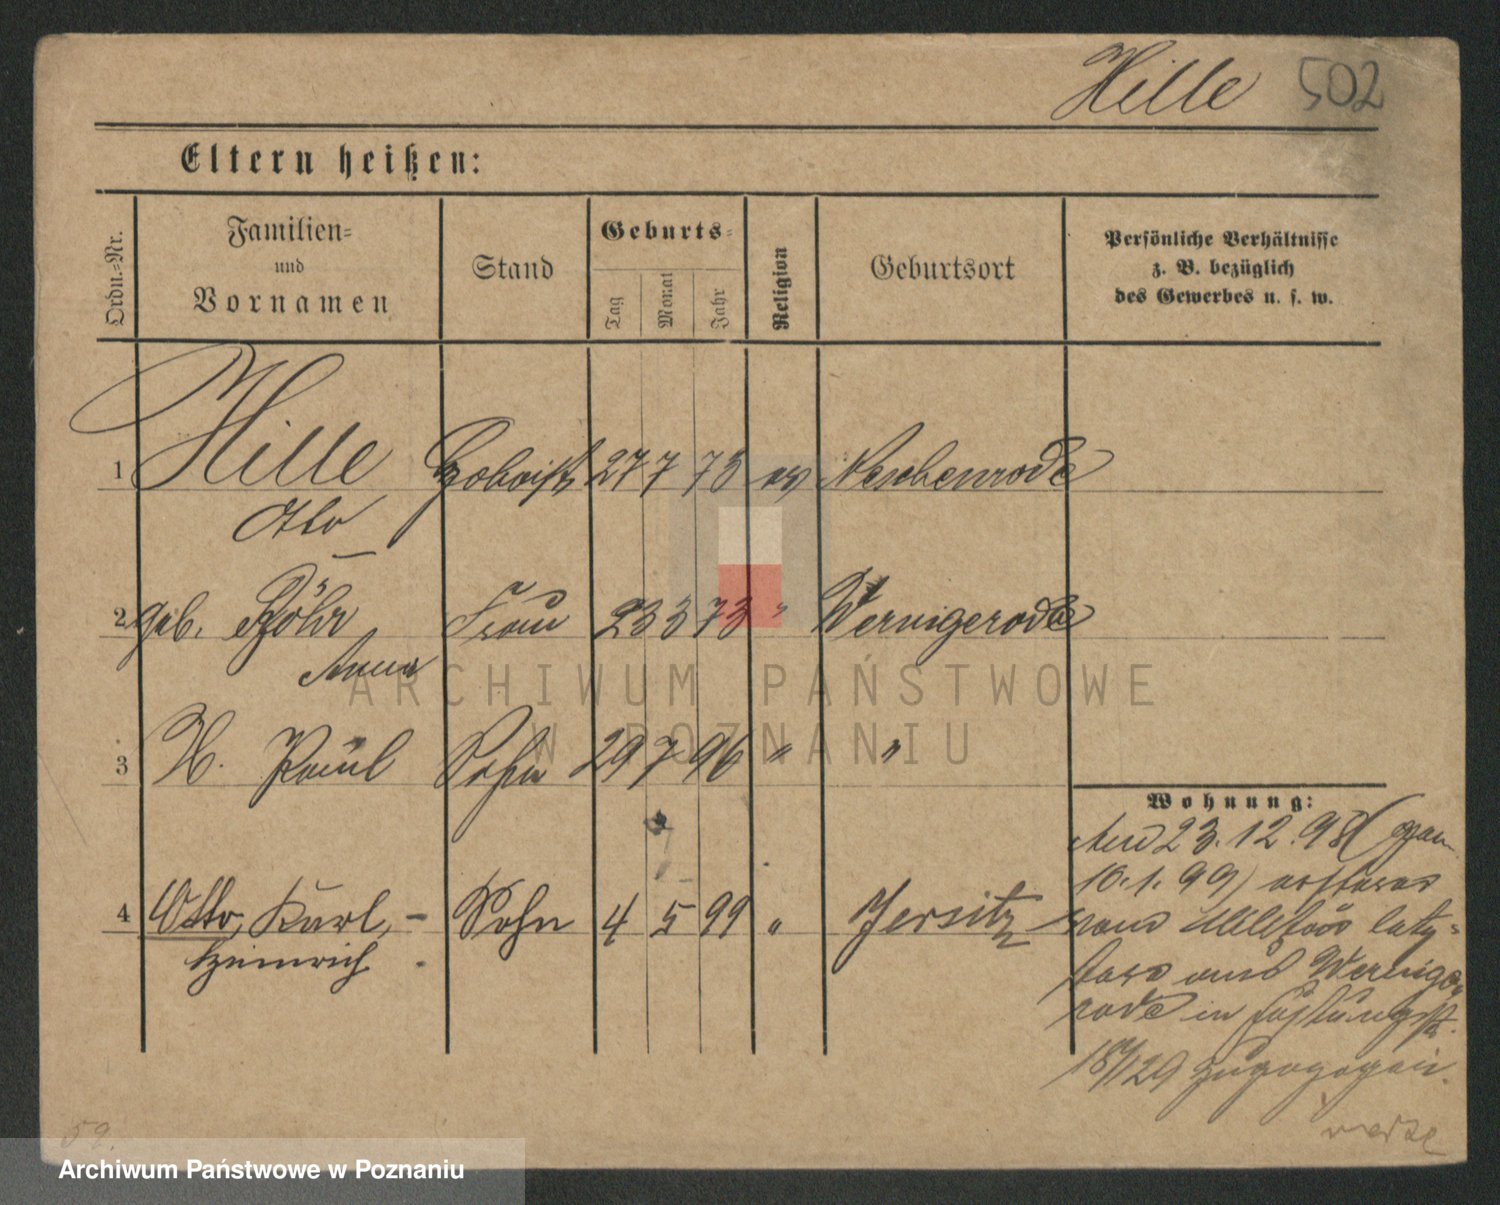 Hille 502
Eltern heißen:
Ordn.-Nr.
Familien-
und
Vornamen
Stand
Geburts-
Tag
Monat
Jahr
Religion
Geburtsort
Persönliche Verhältnisse
z. B. bezüglich
des Gewerbes u. s. w.
1 Hille Hoboist 27 7 73 ev Neschenrode
Otto
2 geb. Böhr Frau 23 3 73 " Wernigerode
Anna
3 H. Paul Sohn 29 7 96 " "
Wohnung:
23. 12. 98 (
10. 1. 99) ersterer
4 Otto, Karl, Sohn 4 5 99 " Jersitz
Heinrich
von letz-
tere aus Wernige-
rode in Festungsstr.
18/129 zugezogen.
59.
ARCHIWUM PAŃSTWOWE
W POZNANIU
Archiwum Państwowe w Poznaniu